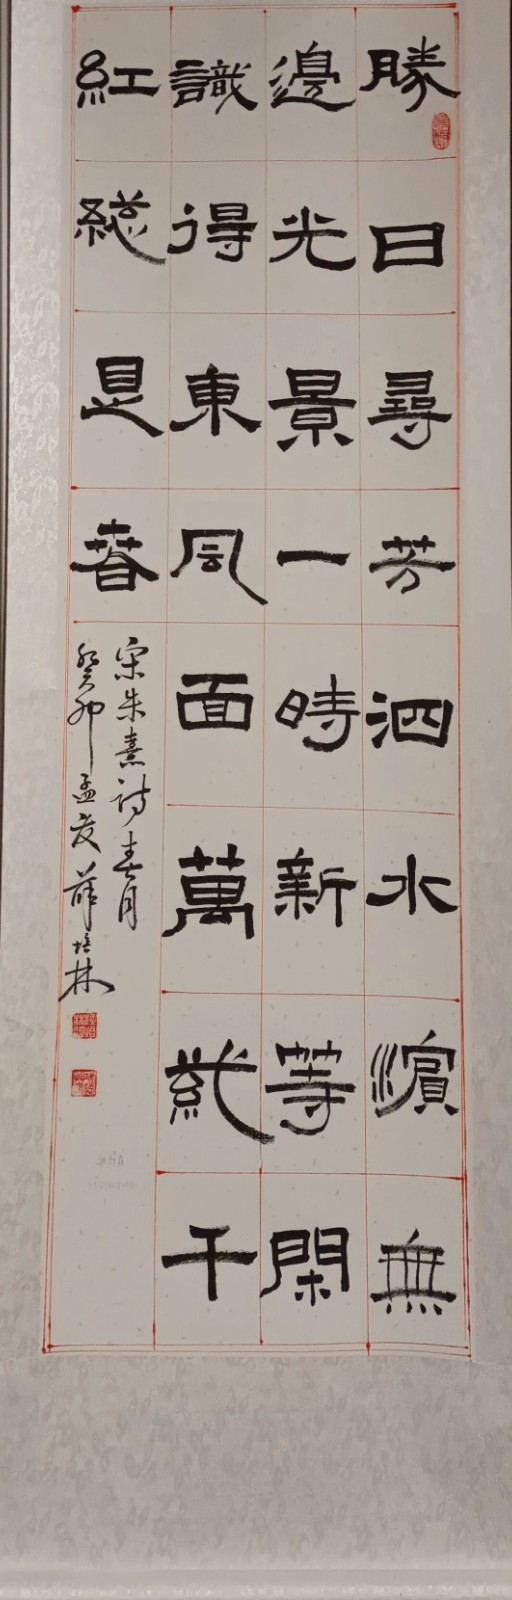 勝日尋芳泗水濱無
邊光景一時新等閑
識得東風面萬紫千
紅總是春
宋朱熹詩春日
癸卯孟夏薛培林